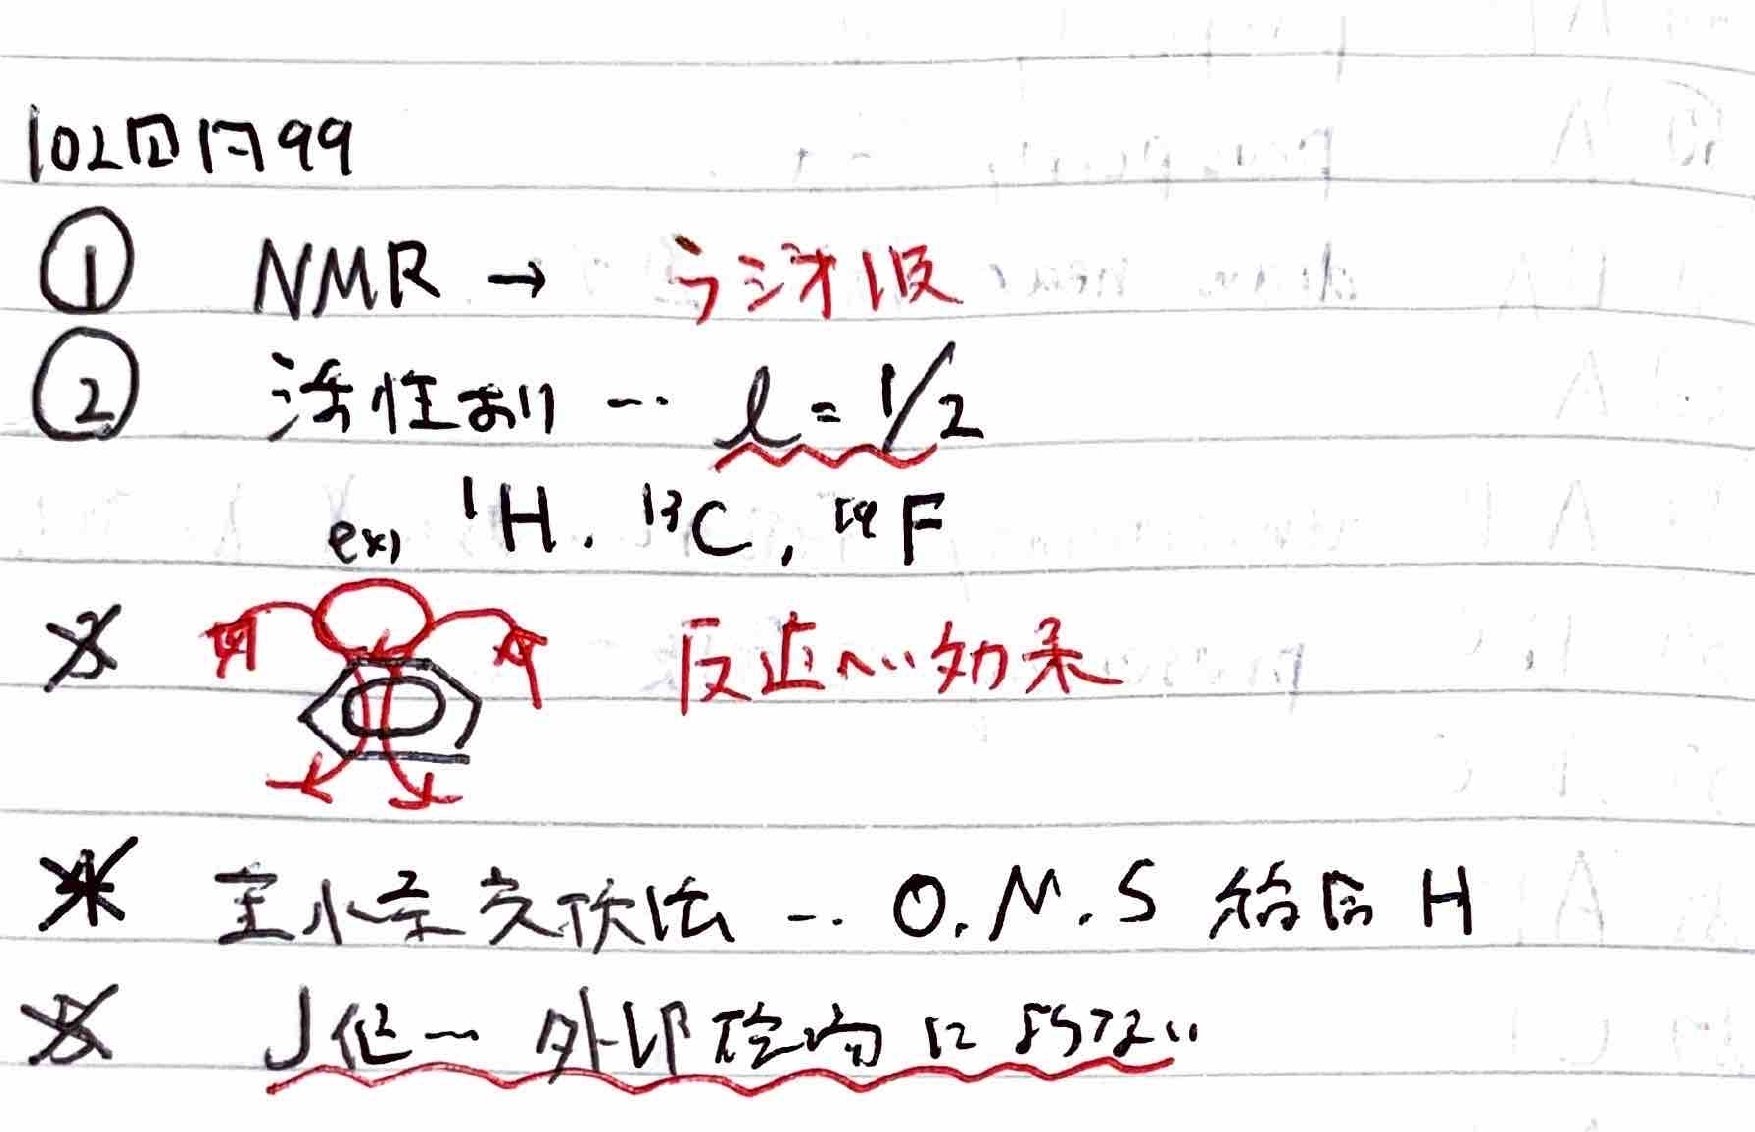 102回問99
① NMR → ラジオ波
② 活性あり … l = 1/2
ex) ¹H. ¹³C, ¹⁹F
3 反遮へい効果
4 重水素交換法 … O. N. S 結合 H
5 J値… 外部磁場によらない